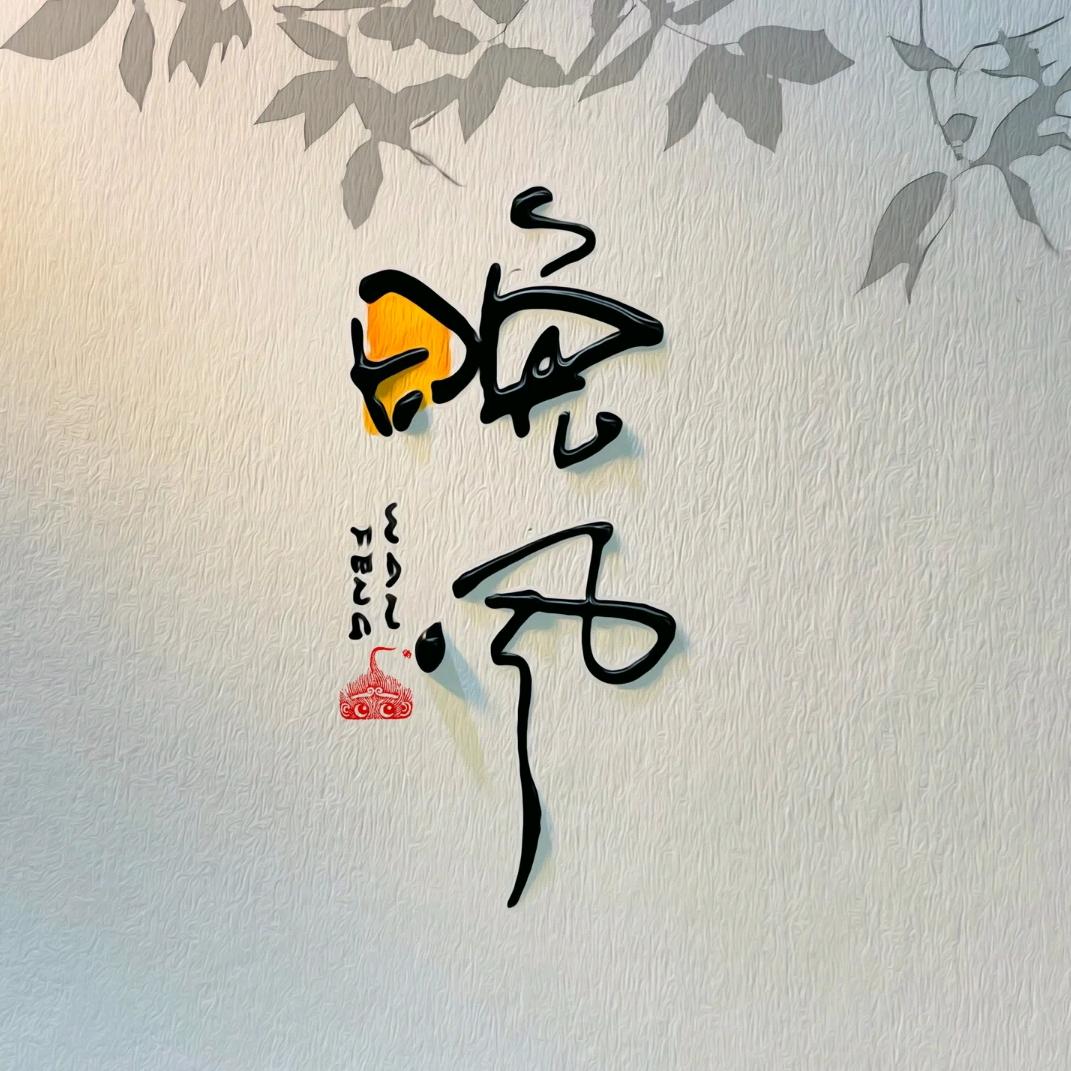 晚风
WAN
FENG